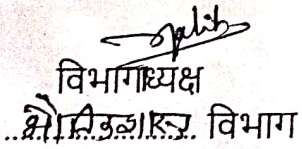 विभागाध्यक्ष
भौतिकशास्त्र विभाग